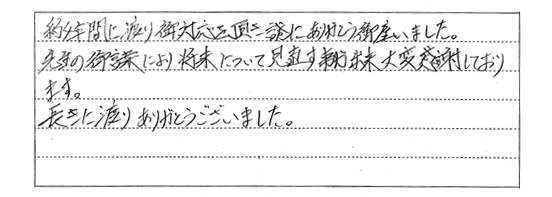 約4年間に渡り御対応を頂き誠にありがとう御座いました。
先生の御言葉により将来について見直す事が出来大変感謝しており
ます。
長きに渡りありがとうございました。